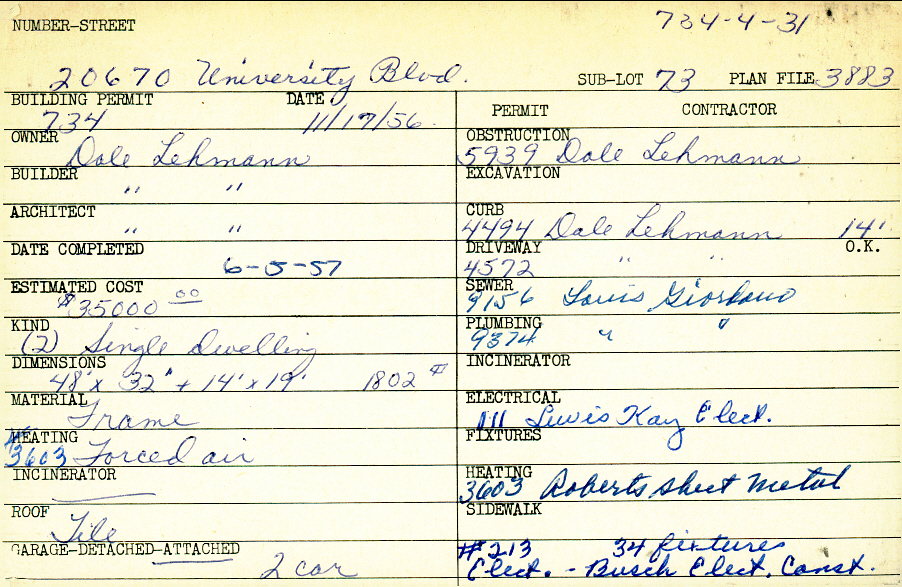 NUMBER-STREET 734-4-31
20670 University Blvd. SUB-LOT 73 PLAN FILE 3883
BUILDING PERMIT DATE
734 11/17/56.
OWNER
Dale Lehmann
BUILDER
" "
ARCHITECT
" "
DATE COMPLETED
6-5-57
ESTIMATED COST
$35000 00
KIND
(2) Single Dwelling
DIMENSIONS
48' x 32" + 14' x 19' 1802
MATERIAL
Frame
HEATING
# 3603 Forced air
INCINERATOR
ROOF
Tile
GARAGE-DETACHED-ATTACHED
2 car
PERMIT CONTRACTOR
OBSTRUCTION
5939 Dale Lehmann
EXCAVATION
CURB
4494 Dale Lehmann 14'
DRIVEWAY O.K.
4572 " "
SEWER
9156 Louis Giordano
PLUMBING
9374 " "
INCINERATOR
ELECTRICAL
111 Lewis Kay Elect.
FIXTURES
HEATING
3603 Roberts Sheet Metal
SIDEWALK
#213 34 fixtures
Elect. - Busch Elect. Const.